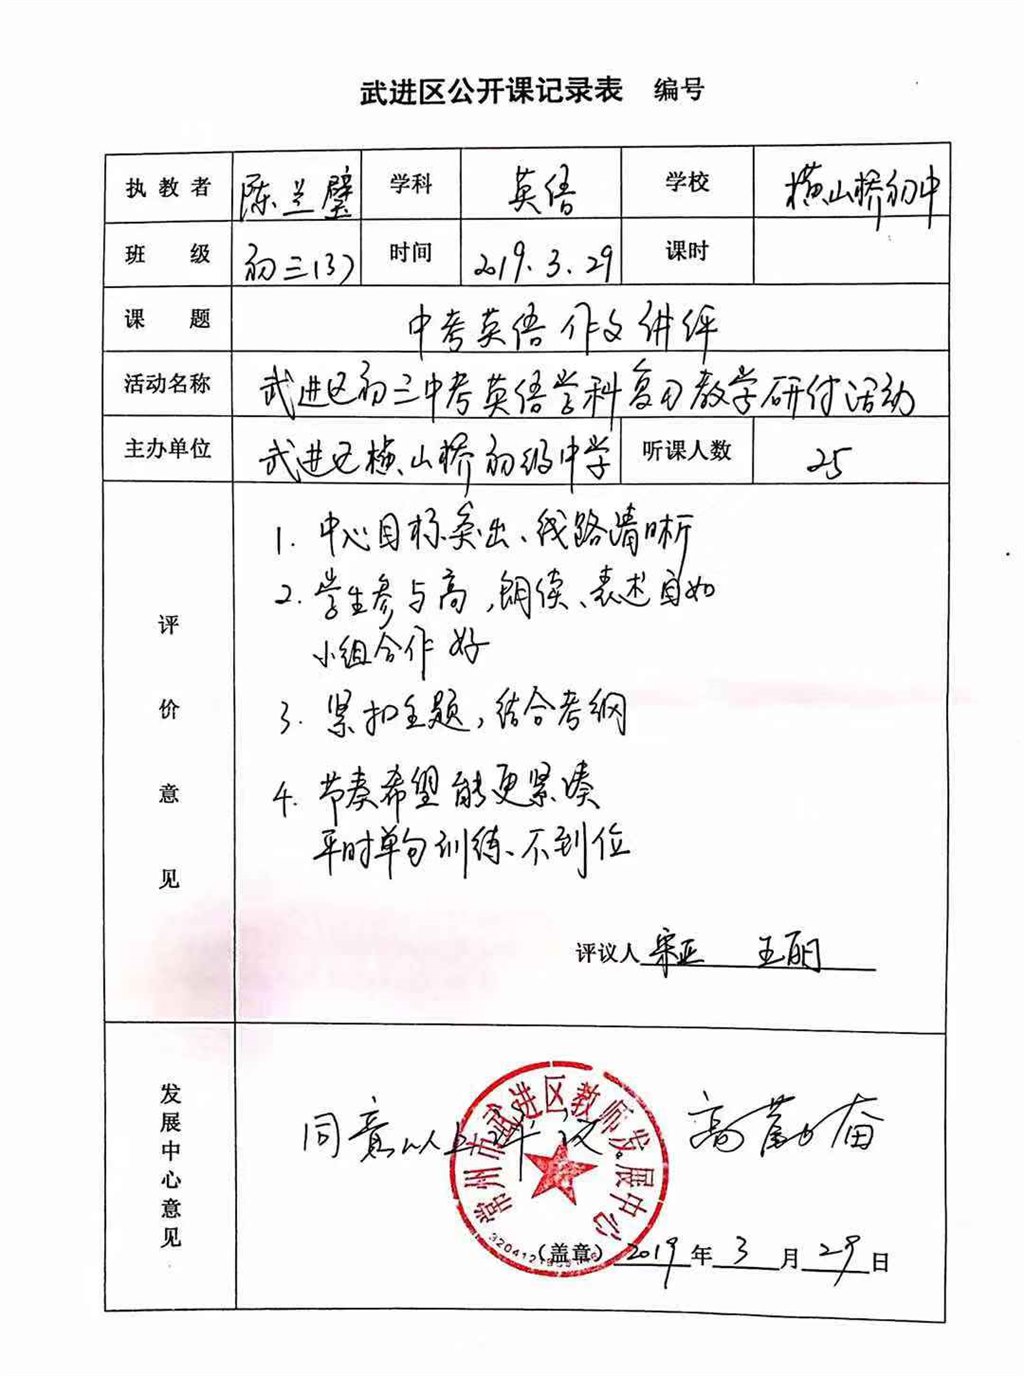 武进区公开课记录表 编号
执教者 陈兰璧 学科 英语 学校 横山桥初中
班级 初三(3) 时间 2019.3.29 课时
课题 中考英语作文讲评
活动名称 武进区初三中考英语学科复习教学研讨活动
主办单位 武进区横山桥初级中学 听课人数 25
评价意见
1. 中心目标突出、线路清晰
2. 学生参与高,朗读、表述自如
小组合作好
3. 紧扣主题,结合考纲
4. 节奏希望能更紧凑
平时单句训练不到位
评议人 宋亚 王丽
发展中心意见
同意以上评议。 高奋
常州市武进区教师发展中心
(盖章) 2019年3月29日